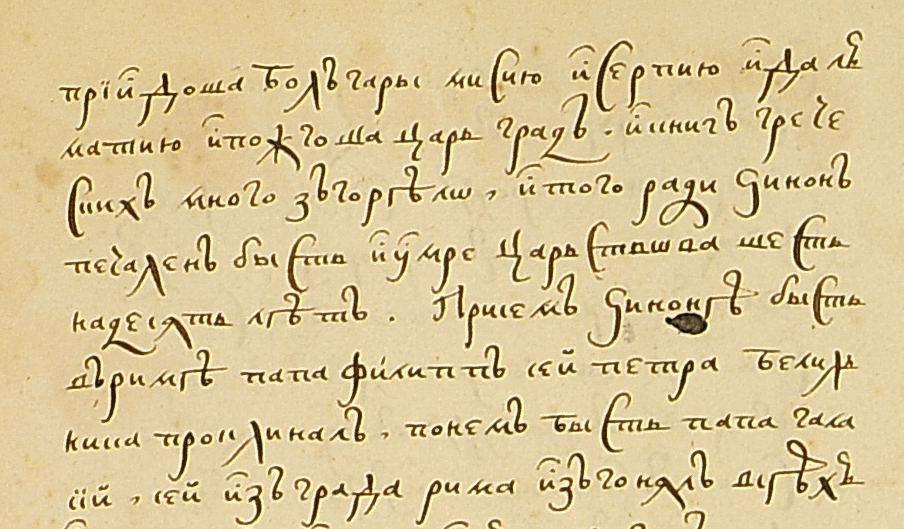 прїи҆доша болъгары мисию и҆серпию и҆дал
матию и҆пожгоша царь градъ. и҆книгъ грече
скихъ много згорѣли, и҆того ради зинонъ
печаленъ бысть и҆у҆мре царьствова шесть
надесять лѣтъ. При семъ зинонѣ бысть
въримѣ папа филиппъ сей петра велик
кина проклиналъ, по немъ бысть папа гала
сїй, сей и҆зъ града рима и҆зъгонялъ всѣхъ